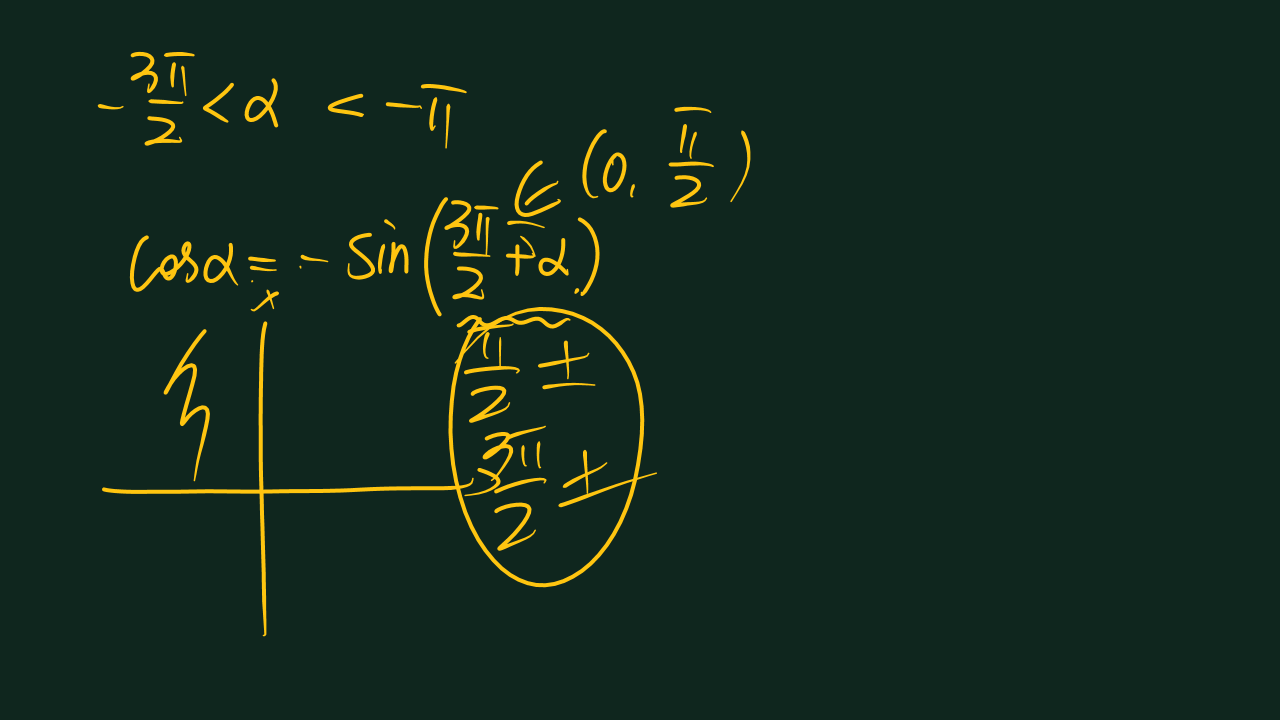 -3π/2 < α < -π
∈ (0, π/2)
cosα = - sin(3π/2 + α)
x
π/2 ±
3π/2 ±